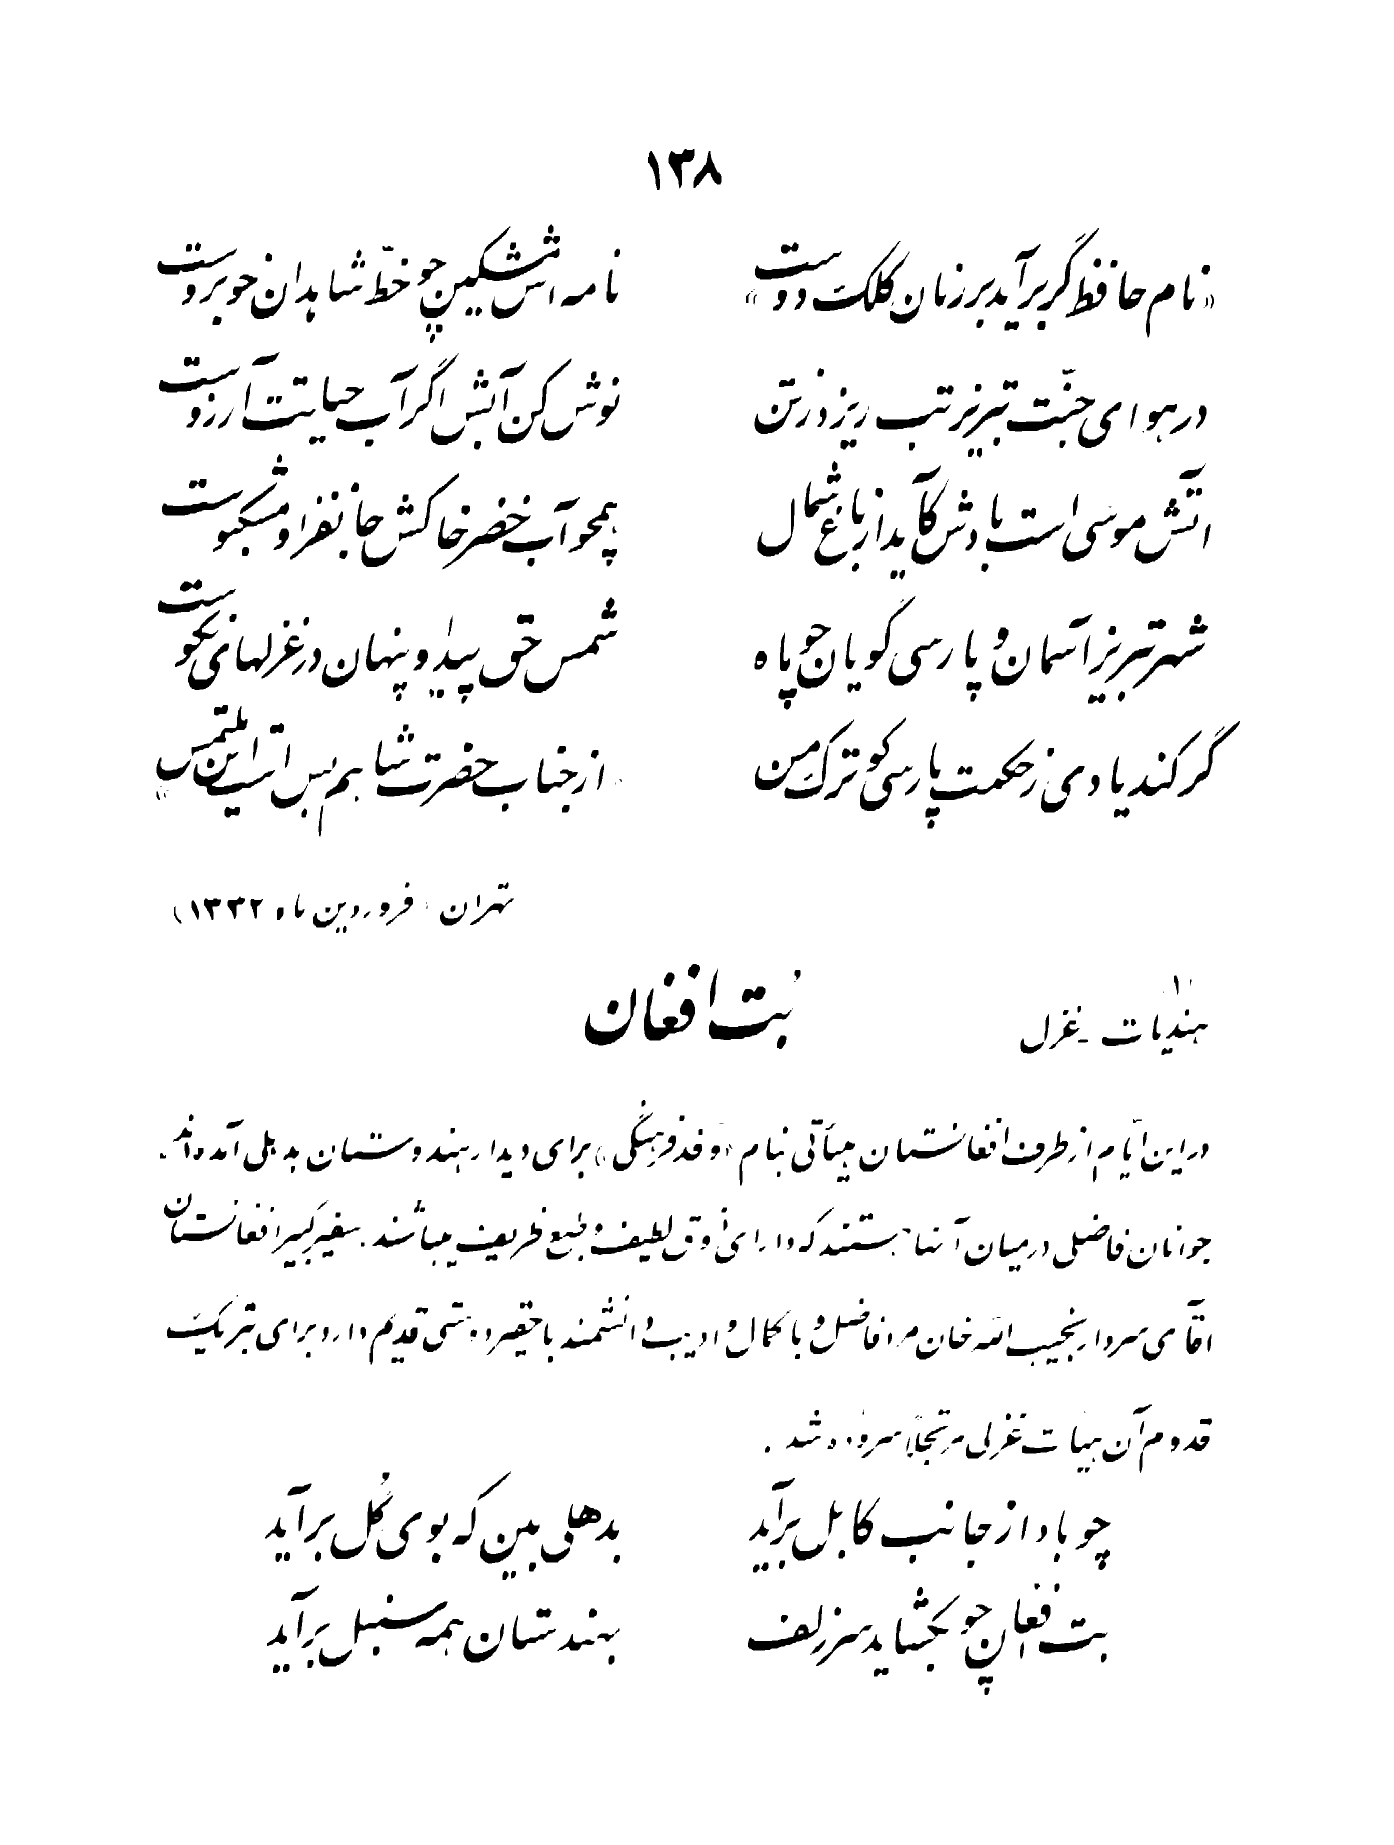 ۱۳۸
«نام حافظ گر برآید بر زبان کلک دوست» نامه اش مشکین چو خطّ شاهدان خوبروست
در هوای جنّت تبریز تب ریزد ز تن نوش کن آبش اگر آب حیاتت آرزوست
آتش موسی است بادش کآید از باغ شمال همچو آب خضر خاکش جانفزا و مشکبوست
شهر تبریز آسمان و پارسی گویان چو ماه شمس حق پیدا و پنهان در غزلهای نکوست
گر کند یادی ز حکمت پارسی گو ترک من «از جناب حضرت شاهم بس است این ملتمس»
تهران (فروردین ماه ۱۳۳۲)
(۱)
هندیات - غزل بُت افغان
در این ایّام از طرف افغانستان هیأتی بنام «وفد فرهنگی» برای دیدار هندوستان به دهلی آمده‌اند.
جوانان فاضلی در میان آنها هستند که دارای ذوق لطیف و طبع ظریف میباشند. سفیر کبیر افغانستان
آقای سردار نجیب الله خان مرد فاضل و با کمال و ادیب و دانشمند با حقیر دوستی قدیم دارد برای تبریک
قدوم آن هیأت غزلی مرتجلاً سروده شد.
چو باد از جانب کابل برآید بدهلی بین که بوی گُل برآید
بت افغان چو بگشاید سر زلف بهندستان همه سنبل برآید